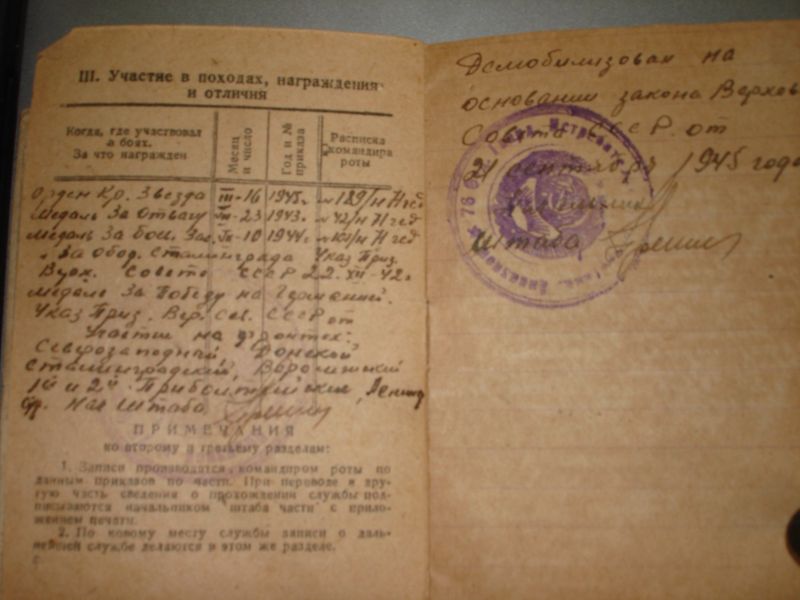 III. Участие в походах, награждения
и отличия
Когда, где участвовал
в боях.
За что награжден
Месяц
и число
Год и №
приказа
Расписка
командира
роты
Орден Кр. Звезда III-16 1945г.
Медаль За отвагу 23 1943г.
Медаль За Боев. Зас. 10 1944г.
За обор. Сталинграда Указ През.
Верх. Совета СССР 22.XII-42г.
Медаль За Победу на Германией.
Указ През. Вер. Сов. СССР от
Участие на фронтах:
Северозападный, Донской
Сталинградский, Воронежский
1й и 2й Прибалтийский, Ленинг
Нач Штаба
ПРИМЕЧАНИЯ
ко второму и третьему разделам:
1. Записи производятся командиром роты по
данным приказов по части. При переводе в дру-
гую часть сведения о прохождении службы под-
писываются начальником штаба части с прило-
жением печати.
2. По новому месту службы записи о даль-
нейшей службе делаются в этом же разделе.
Демобилизован на
основании закона Верхов
Совета СССР от
21 сентября 1945 года
Штаба